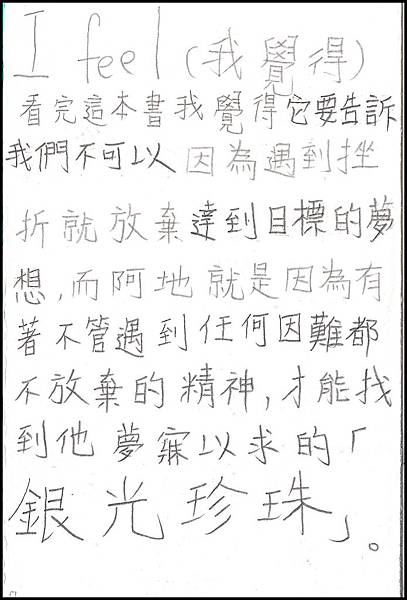 I feel (我覺得)
看完這本書我覺得它要告訴
我們不可以因為遇到挫
折就放棄達到目標的夢
想,而阿地就是因為有
著不管遇到任何困難都
不放棄的精神,才能找
到他夢寐以求的「
銀光珍珠」。